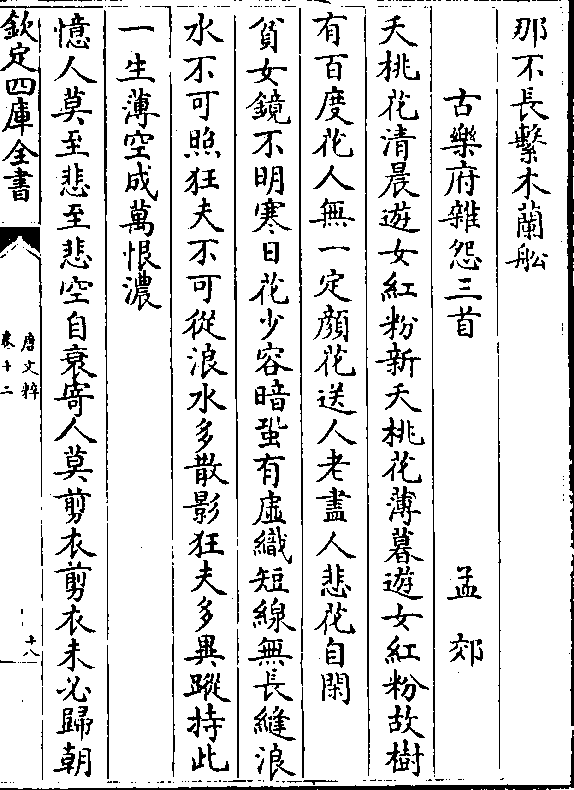 那不長繫木蘭舩
古樂府雜怨三首 孟郊
夭桃花清晨遊女紅粉新夭桃花薄暮遊女紅粉故樹
有百度花人無一定顔花送人老盡人悲花自閑
貧女鏡不明寒日花少容暗蛩有虛織短線無長縫浪
水不可照狂夫不可從浪水多散影狂夫多異蹤持此
一生薄空成萬恨濃
憶人莫至悲至悲空自衰寄人莫剪衣剪衣未必歸朝
欽定四庫全書
唐文粹
卷十二
十八